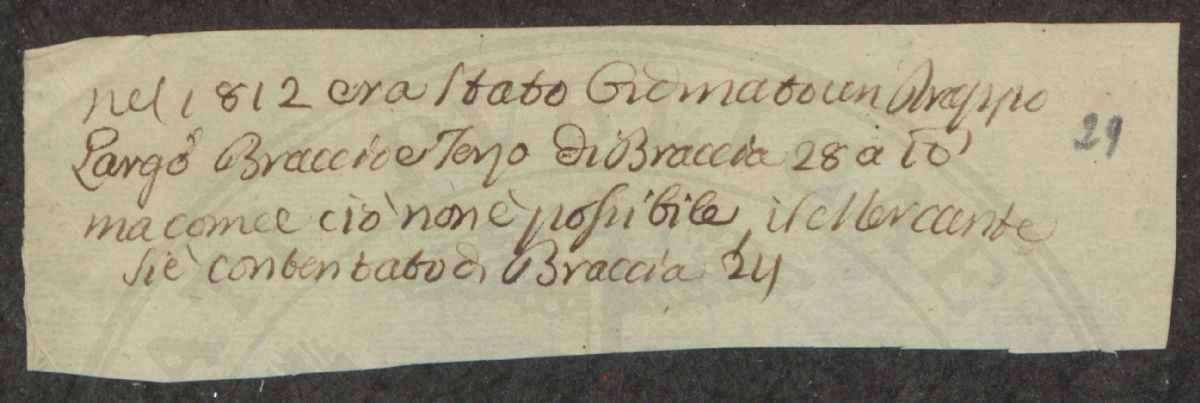 nel 1812 era Stato Ordinato un Drappo
Largo Braccio e Terzo di Braccia 28 a
29
ma come ciò non è possibile il Mercante
si è contentato di Braccia 24